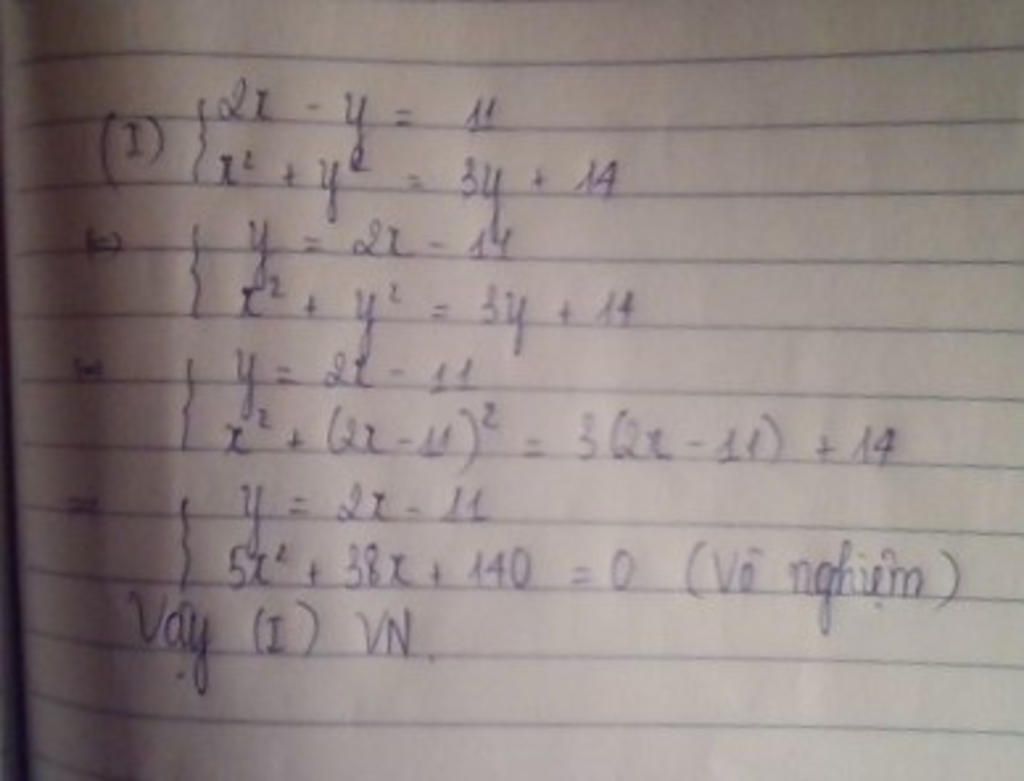 (I) { 2x - y = 11
x² + y² = 3y + 14
⇔ { y = 2x - 11
x² + y² = 3y + 14
⇔ { y = 2x - 11
x² + (2x - 11)² = 3(2x - 11) + 14
⇔ { y = 2x - 11
5x² + 38x + 140 = 0 (Vô nghiệm)
Vậy (I) VN.